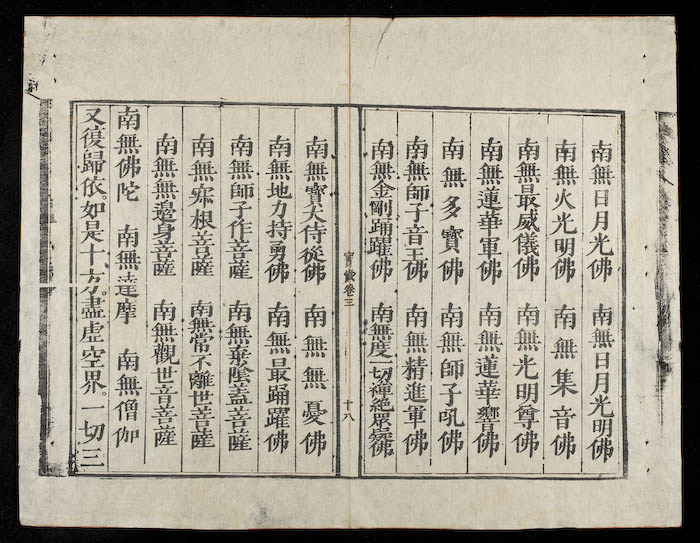 南無日月光佛　南無日月光明佛
南無火光明佛　南無集音佛
南無最威儀佛　南無光明尊佛
南無蓮華軍佛　南無蓮華響佛
南無多寶佛　南無師子吼佛
南無師子音王佛　南無精進軍佛
南無金剛踊躍佛　南無度一切禪絕眾疑佛
寶懺卷三　十八
南無寶大侍從佛　南無無憂佛
南無地力持勇佛　南無最踊躍佛
南無師子作菩薩　南無棄陰蓋菩薩
南無寂根菩薩　南無常不離世菩薩
南無無邊身菩薩　南無觀世音菩薩
南無佛陀　南無達摩　南無僧伽
又復歸依。如是十方。盡虛空界。一切三